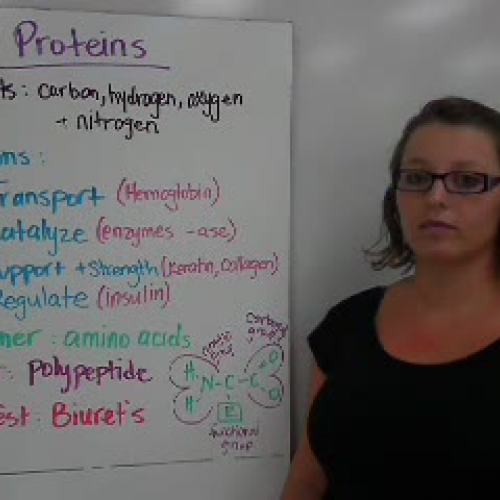 Proteins
ts: carbon, hydrogen, oxygen
+ nitrogen
ons:
Transport (Hemoglobin)
atalyze (enzymes -ase)
upport + Strength (Keratin, Collagen)
Regulate (insulin)
mer: amino acids
r: polypeptide
est: Biuret's
carboxyl
group
H
N-C-C
O
H
O
R
functional
group